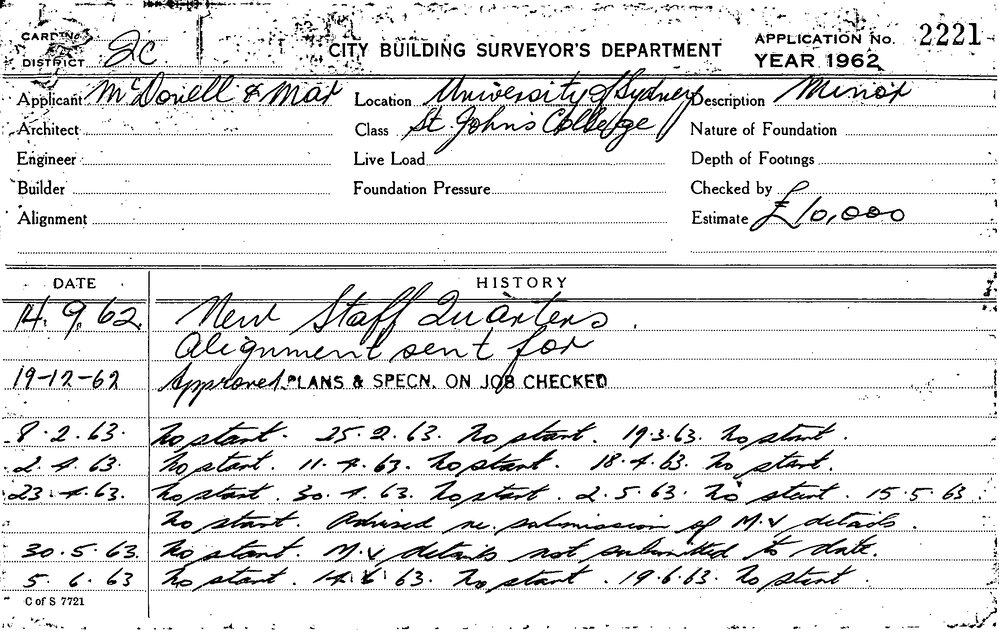 CARD No.
DISTRICT 2C
CITY BUILDING SURVEYOR'S DEPARTMENT
APPLICATION No. 2221
YEAR 1962
Applicant McDonell & Mar Location University of Sydney Description Minor
Architect Class St. John's College Nature of Foundation
Engineer Live Load Depth of Footings
Builder Foundation Pressure Checked by
Alignment Estimate £10,000
DATE HISTORY
14.9.62. New Staff Quarters.
Alignment sent for
19-12-62 Approved PLANS & SPECN. ON JOB CHECKED
8.2.63. No start. 25.2.63. No start. 19.3.63. No start.
2.4.63. No start. 11.4.63. No start. 18.4.63. No start.
23.4.63. No start. 30.4.63. No start. 2.5.63. No start. 15.5.63
No start. Advised re. submission of M.V details.
30.5.63. No start. M.V details not submitted to date.
5.6.63 No start. 14.6.63. No start. 19.6.63. No start.
C of S 7721